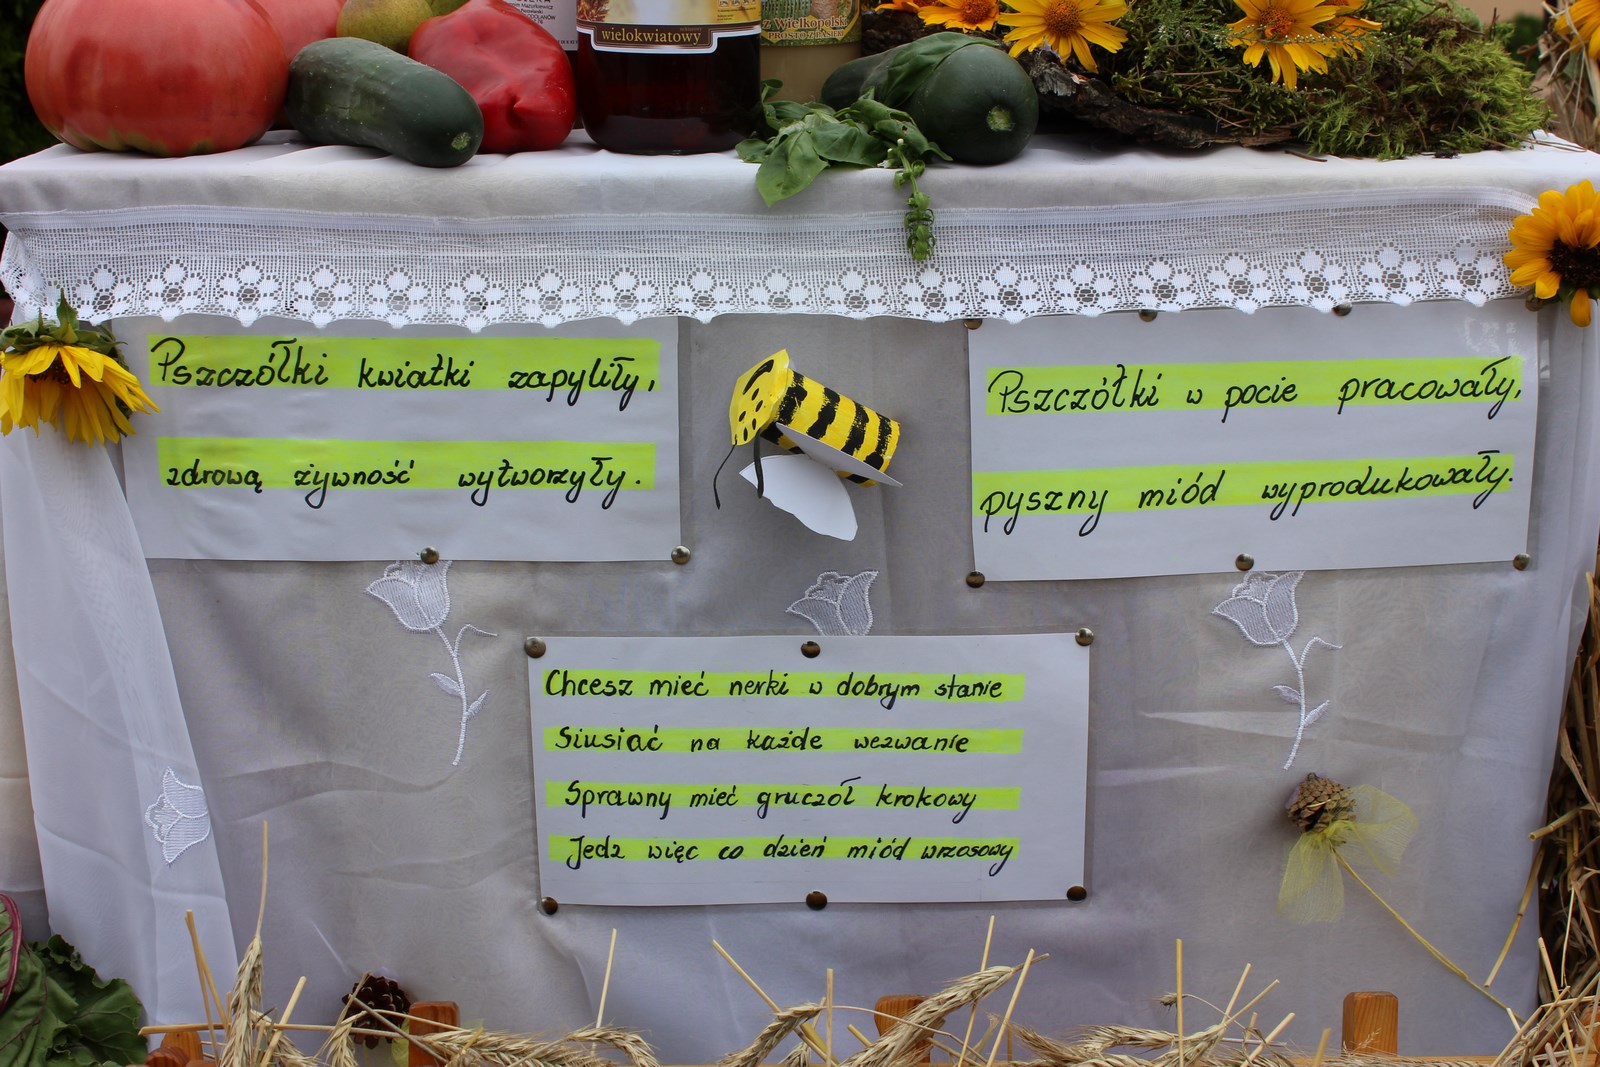 wielokwiatowy
z Wielkopolski
PROSTO Z PASIEKI
Pszczółki kwiatki zapyliły,
zdrową żywność wytworzyły.
Pszczółki w pocie pracowały,
pyszny miód wyprodukowały.
Chcesz mieć nerki w dobrym stanie
Siusiać na każde wezwanie
Sprawny mieć gruczoł krokowy
Jedz więc co dzień miód wrzosowy